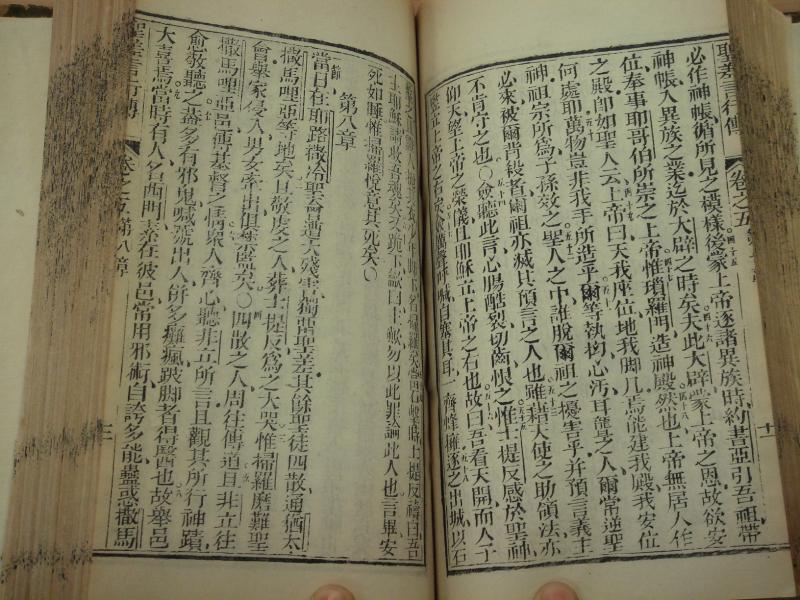 聖差言行傳 卷之五
必作神帳循所見之模樣後蒙上帝逐諸異族時約書亞引吾祖帶
神帳入異族之業迄於大辟之時矣夫此大辟蒙上帝之恩故欲安
位奉事耶哥伯所崇之上帝惟瑣羅門造神殿然也上帝無居人作
之殿卽如聖人云上帝曰天我座位地我脚几焉能建我殿我安位
何處耶萬物豈非我手所造乎爾等執拗心汚耳聾之人爾常逆聖
神祖宗所爲子孫效之聖人之中誰脫爾祖之擾害乎並預言義士
必來被爾背殺者爾祖亦滅其預言之人也雖藉天使之助領法亦
不肯守之也〇僉聽此言心腸酷裂切齒恨之惟士提反感於聖神
仰天望上帝之榮儀且耶穌立上帝之右也故曰吾看天開而人子
自塞其耳一齊峰擁逐之出城以石
士耶穌請收吾魂矣又跪下籲曰主歟勿以此罪論此人也言畢安
死如睡惟掃羅悅意其死矣〇
第八章
當日在耶路撒冷聖會遭大殘害獨留聖差其餘聖徒四散通猶太
撒馬哩亞等地矣且敬虔之人葬士提反爲之大哭惟掃羅磨難聖
會舉家侵入男女牽出俱禁監矣〇四散之人周往傳道且非立往
撒馬哩亞邑傳基督之情衆人齊心聽非立所言且觀其所行神蹟
愈敬聽之蓋多有邪鬼喊號出人併多癱瘋跛脚者得醫也故舉邑
大喜焉當時有人名西門素在彼邑常用邪術自誇多能蠱惑撒馬
卷之五第八章